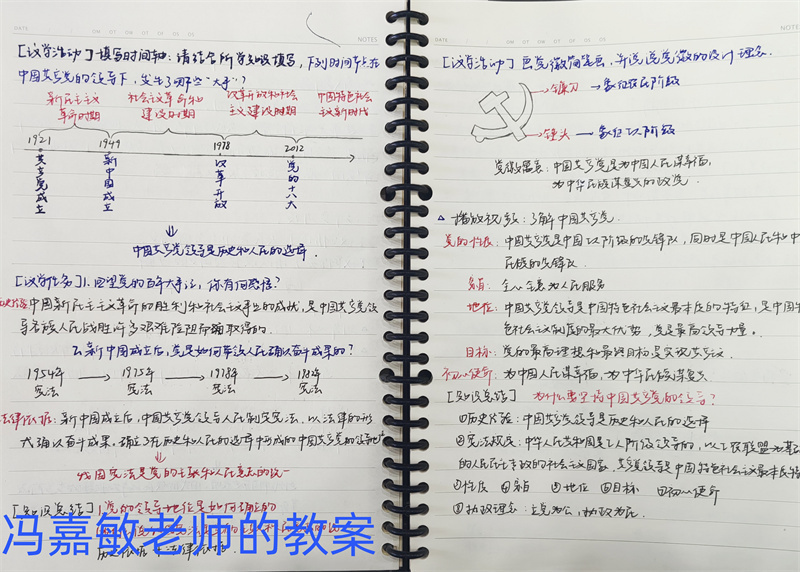 DATE
NOTES
[议学活动] 填写时间轴：请结合所学知识填写，下列时间节点在
中国共产党的领导下，发生了哪些“大事”？
新民主主义革命时期
社会主义革命和建设时期
改革开放和社会主义建设时期
中国特色社会主义新时代
1921 1949 1978 2012
共产党成立
新中国成立
改革开放
党的十八大
中国共产党领导是历史和人民的选择
[议学任务] 1.回望党的百年大事记，你有何感悟？
中国新民主主义革命的胜利和社会主义事业的成就，是中国共产党领
导各族人民战胜许多艰难险阻而确取得的.
2.新中国成立后，党是如何带领人民确认奋斗成果的？
1954年宪法 → 1975年宪法 → 1978年宪法 → 1982年宪法
法律依据：新中国成立后，中国共产党领导人民制定宪法，以法律的形
式确认奋斗成果。确立了在历史和人民的选择中形成的中国共产党的领导地位
我国宪法是党的主张和人民意志的统一
[知识总结] 1.党的领导地位是如何确定的
冯嘉敏老师的教案
DATE
NOTES
[议学活动] 画党徽简笔画，并说说党徽的设计理念.
镰刀 → 象征农民阶级
锤头 → 象征工人阶级
党徽寓意：中国共产党是为中国人民谋幸福，
为中华民族谋复兴的政党.
播放视频：了解中国共产党.
党的性质：中国共产党是中国工人阶级的先锋队，同时是中国人民和中
民族的先锋队.
宗旨：全心全意为人民服务
地位：中国共产党领导是中国特色社会主义最本质的特征，是中国特
色社会主义制度的最大优势，党是最高领导力量。
目标：党的最高理想和最终目标是实现共产主义.
初心使命：为中国人民谋幸福，为中华民族谋复兴
[知识总结] 为什么要坚持中国共产党的领导？
①历史结论：中国共产党领导是历史和人民的选择
②宪法规定：中华人民共和国是工人阶级领导的，以工农联盟为基础
的人民民主专政的社会主义国家. 共产党领导是中国特色社会主义最本质特
①性质 ②宗旨 ③地位 ④目标 ⑤初心使命
执政理念：立党为公，执政为民.